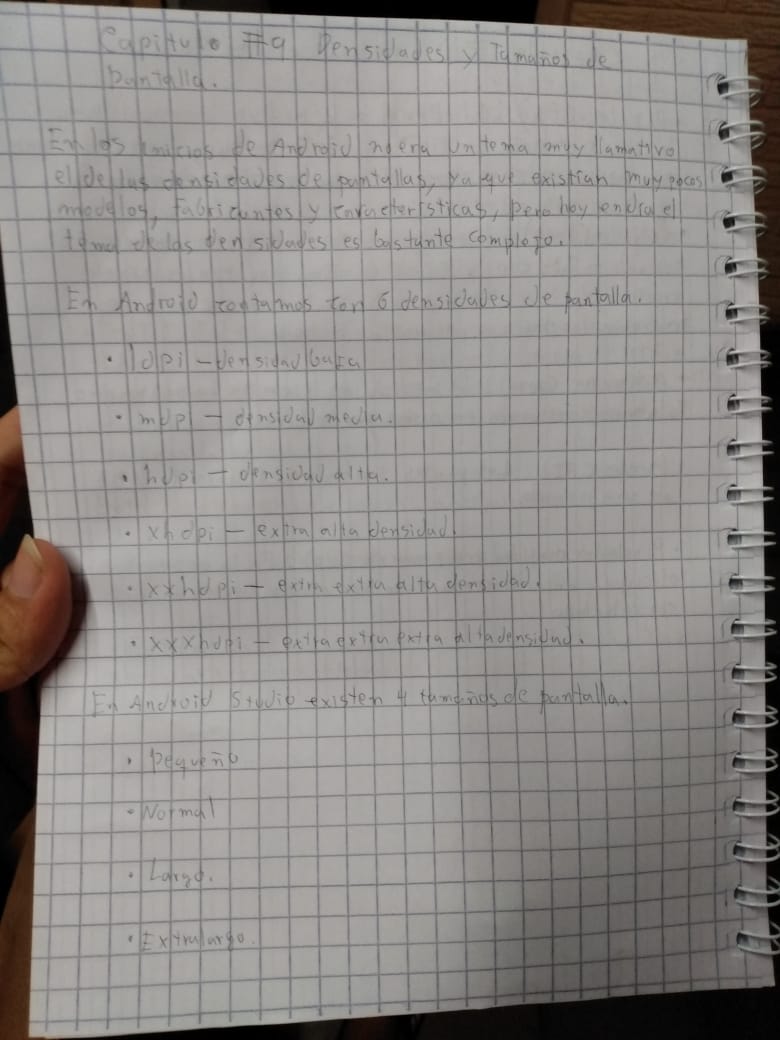 Capitulo #9 Densidades y Tamaños de
Pantalla.
En los inicios de Android no era un tema muy llamativo
el de las densidades de pantallas, ya que existían muy pocos
modelos, fabricantes y características, pero hoy en día el
tema de las densidades es bastante complejo.
En Android contamos con 6 densidades de pantalla.
• ldpi - densidad baja
• mdpi - densidad media.
• hdpi - densidad alta.
• xhdpi - extra alta densidad.
• xxhdpi - extra extra alta densidad.
• xxxhdpi - extra extra extra alta densidad.
En Android Studio existen 4 tamaños de pantalla.
• Pequeño
• Normal
• Largo.
• Extralargo.